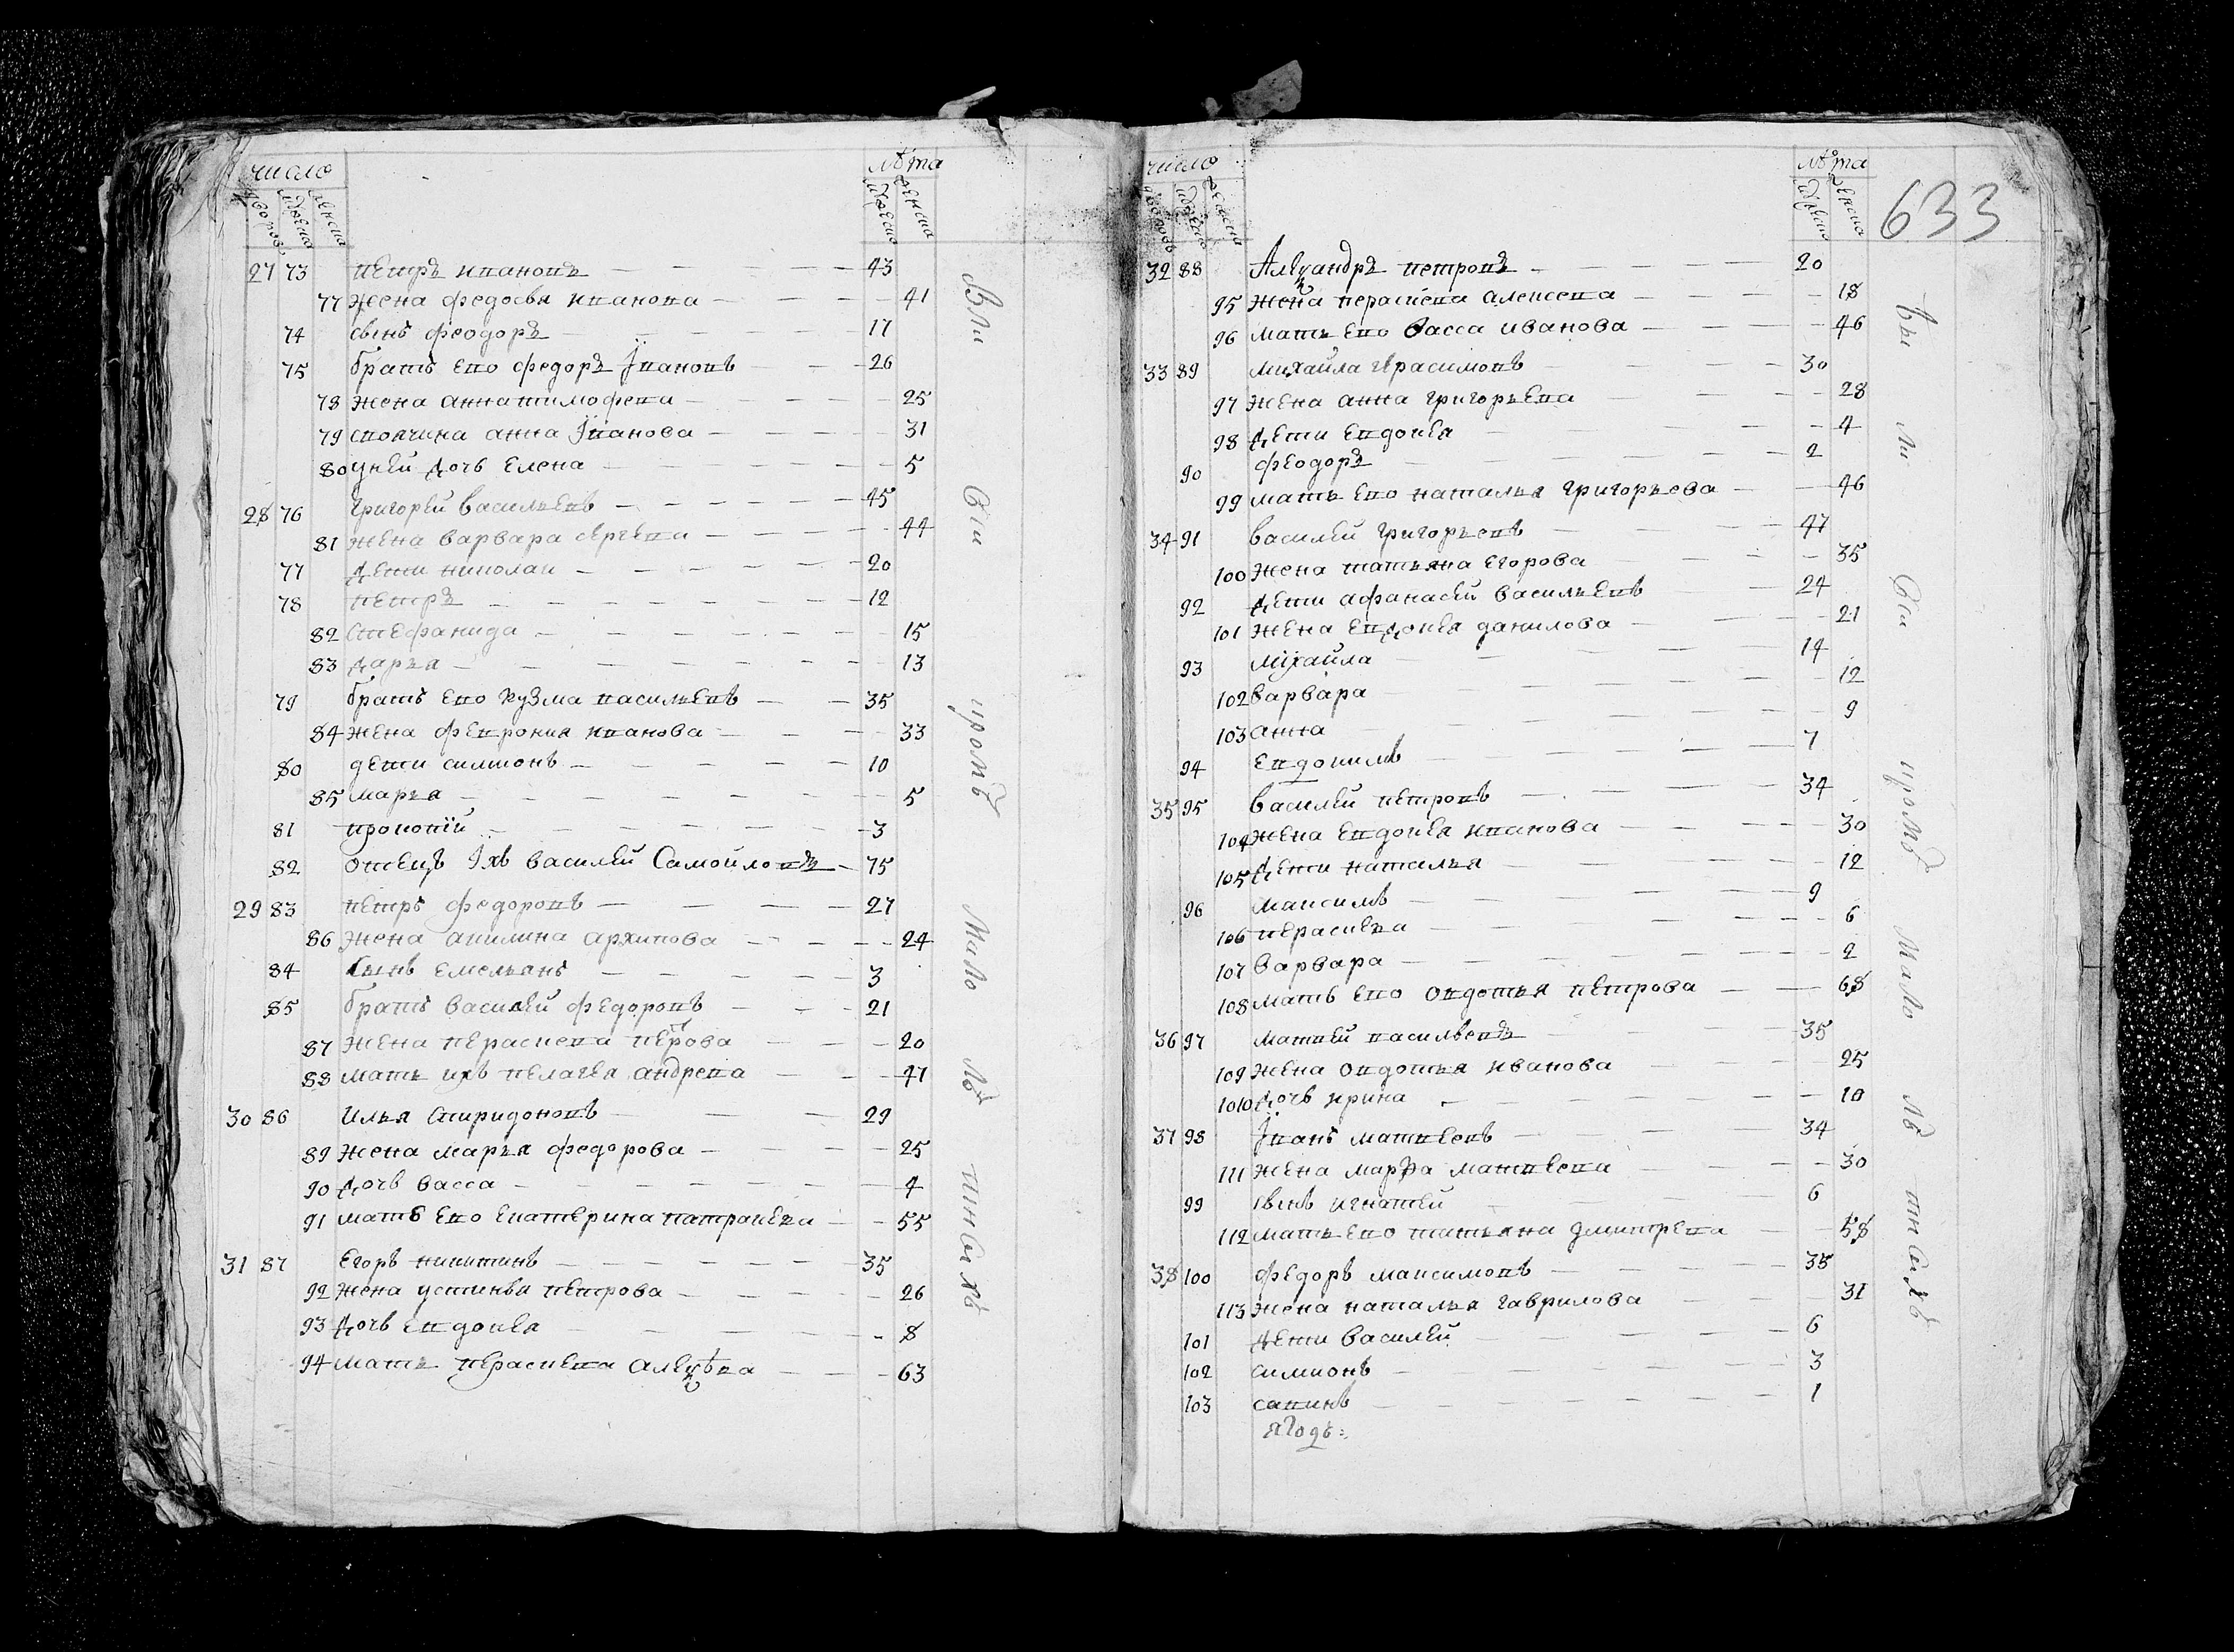 число
лѣта
дворовъ
мужеска
женска
мужеско
женска
27 73 Петръ Ивановъ 43
77 жена Федосья Иванова 41
74 сынъ Феодоръ 17
75 братъ Ево Федоръ Iвановъ 26
78 жена Анна Тимофева 25
79 своячина Анна Iванова 31
80 уней дочь Елена 5
28 76 Григорей Васильевъ 45
81 жена Варвара Сергева 44
77 дети Николаи 20
78 Петръ 12
82 Стефанида 15
83 Дарья 13
79 братъ Ево Кузма Васильевъ 35
84 жена Феврония Иванова 33
80 дети Симионъ 10
85 Марья 5
81 Прокопiй 3
82 отецъ Iхъ Василей Самойловъ 75
29 83 Петръ Федоровъ 27
86 жена Акилина Архипова 24
84 сынъ Емельянъ 3
85 братъ Василей Федоровъ 21
87 жена Пераскева Петрова 20
88 мать ихъ Пелагея Андрева 47
30 86 Илья Спиридоновъ 29
89 жена Марья Федорова 25
90 дочь Васса 4
91 мать Ево Екатерина Патракева 55
31 87 Егоръ Никитинъ 35
92 жена Устинья Петрова 26
93 дочь Евдокея 8
94 мать Пераскева Алексѣва 63
Вли
Сiи
кромѣ
мало
лѣ
тнСихъ
число
лѣта
дворовъ
мужеско
женска
мужеско
женска
633
32 88 Александръ Петровъ 20
95 жена Пераскева Алексева 18
96 мать Ево Васса Иванова 46
33 89 Михайла Герасимовъ 30
97 жена Анна Григорьева 28
98 дети Евдокея 4
90 Феодоръ 2
99 мать Ево Наталья Григорьева 46
34 91 Василей Григорьевъ 47
100 жена Татьяна Егорова 35
92 дети Афанасей Васильевъ 24
101 жена Евдокея Данилова 21
93 Михайла 14
102 Варвара 12
103 Анна 9
94 Евдокимъ 7
35 95 Василей Петровъ 34
104 жена Евдокея Иванова 30
105 дети Наталья 12
96 Максимъ 9
106 Пераскева 6
107 Варвара 2
108 мать Ево Овдотья Петрова 68
36 97 Матвей Васильевъ 35
109 жена Овдотья Иванова 25
1010 дочь Ирина 10
37 98 Iванъ Матвеевъ 34
111 жена Марфа Матвеева 30
99 сынъ Игнатей 6
112 мать Ево Татьяна Дмитрева 58
38 100 Федоръ Максимовъ 35
113 жена Наталья Гаврилова 31
101 дети Василей 6
102 Симионъ 3
103 Савинъ 1
ягодъ:
бы
ли
Сiи
кромѣ
мало
лѣ
тнСихъ